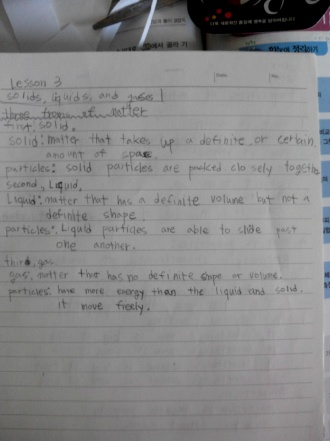 Lesson 3
Date. No.
solids, liquids, and gases
three froms of matter
first, solid.
solid: matter that takes up a definite or certain
amount of space.
particles: solid particles are packed closely together
second, Liquid,
Liquid: matter that has a definite volume but not a
definite shape.
particles: Liquid particles are able to slide past
one another.
third, gas
gas: matter that has no definite shpe or volume.
particles: have more energy than the liquid and solid.
it move freely.